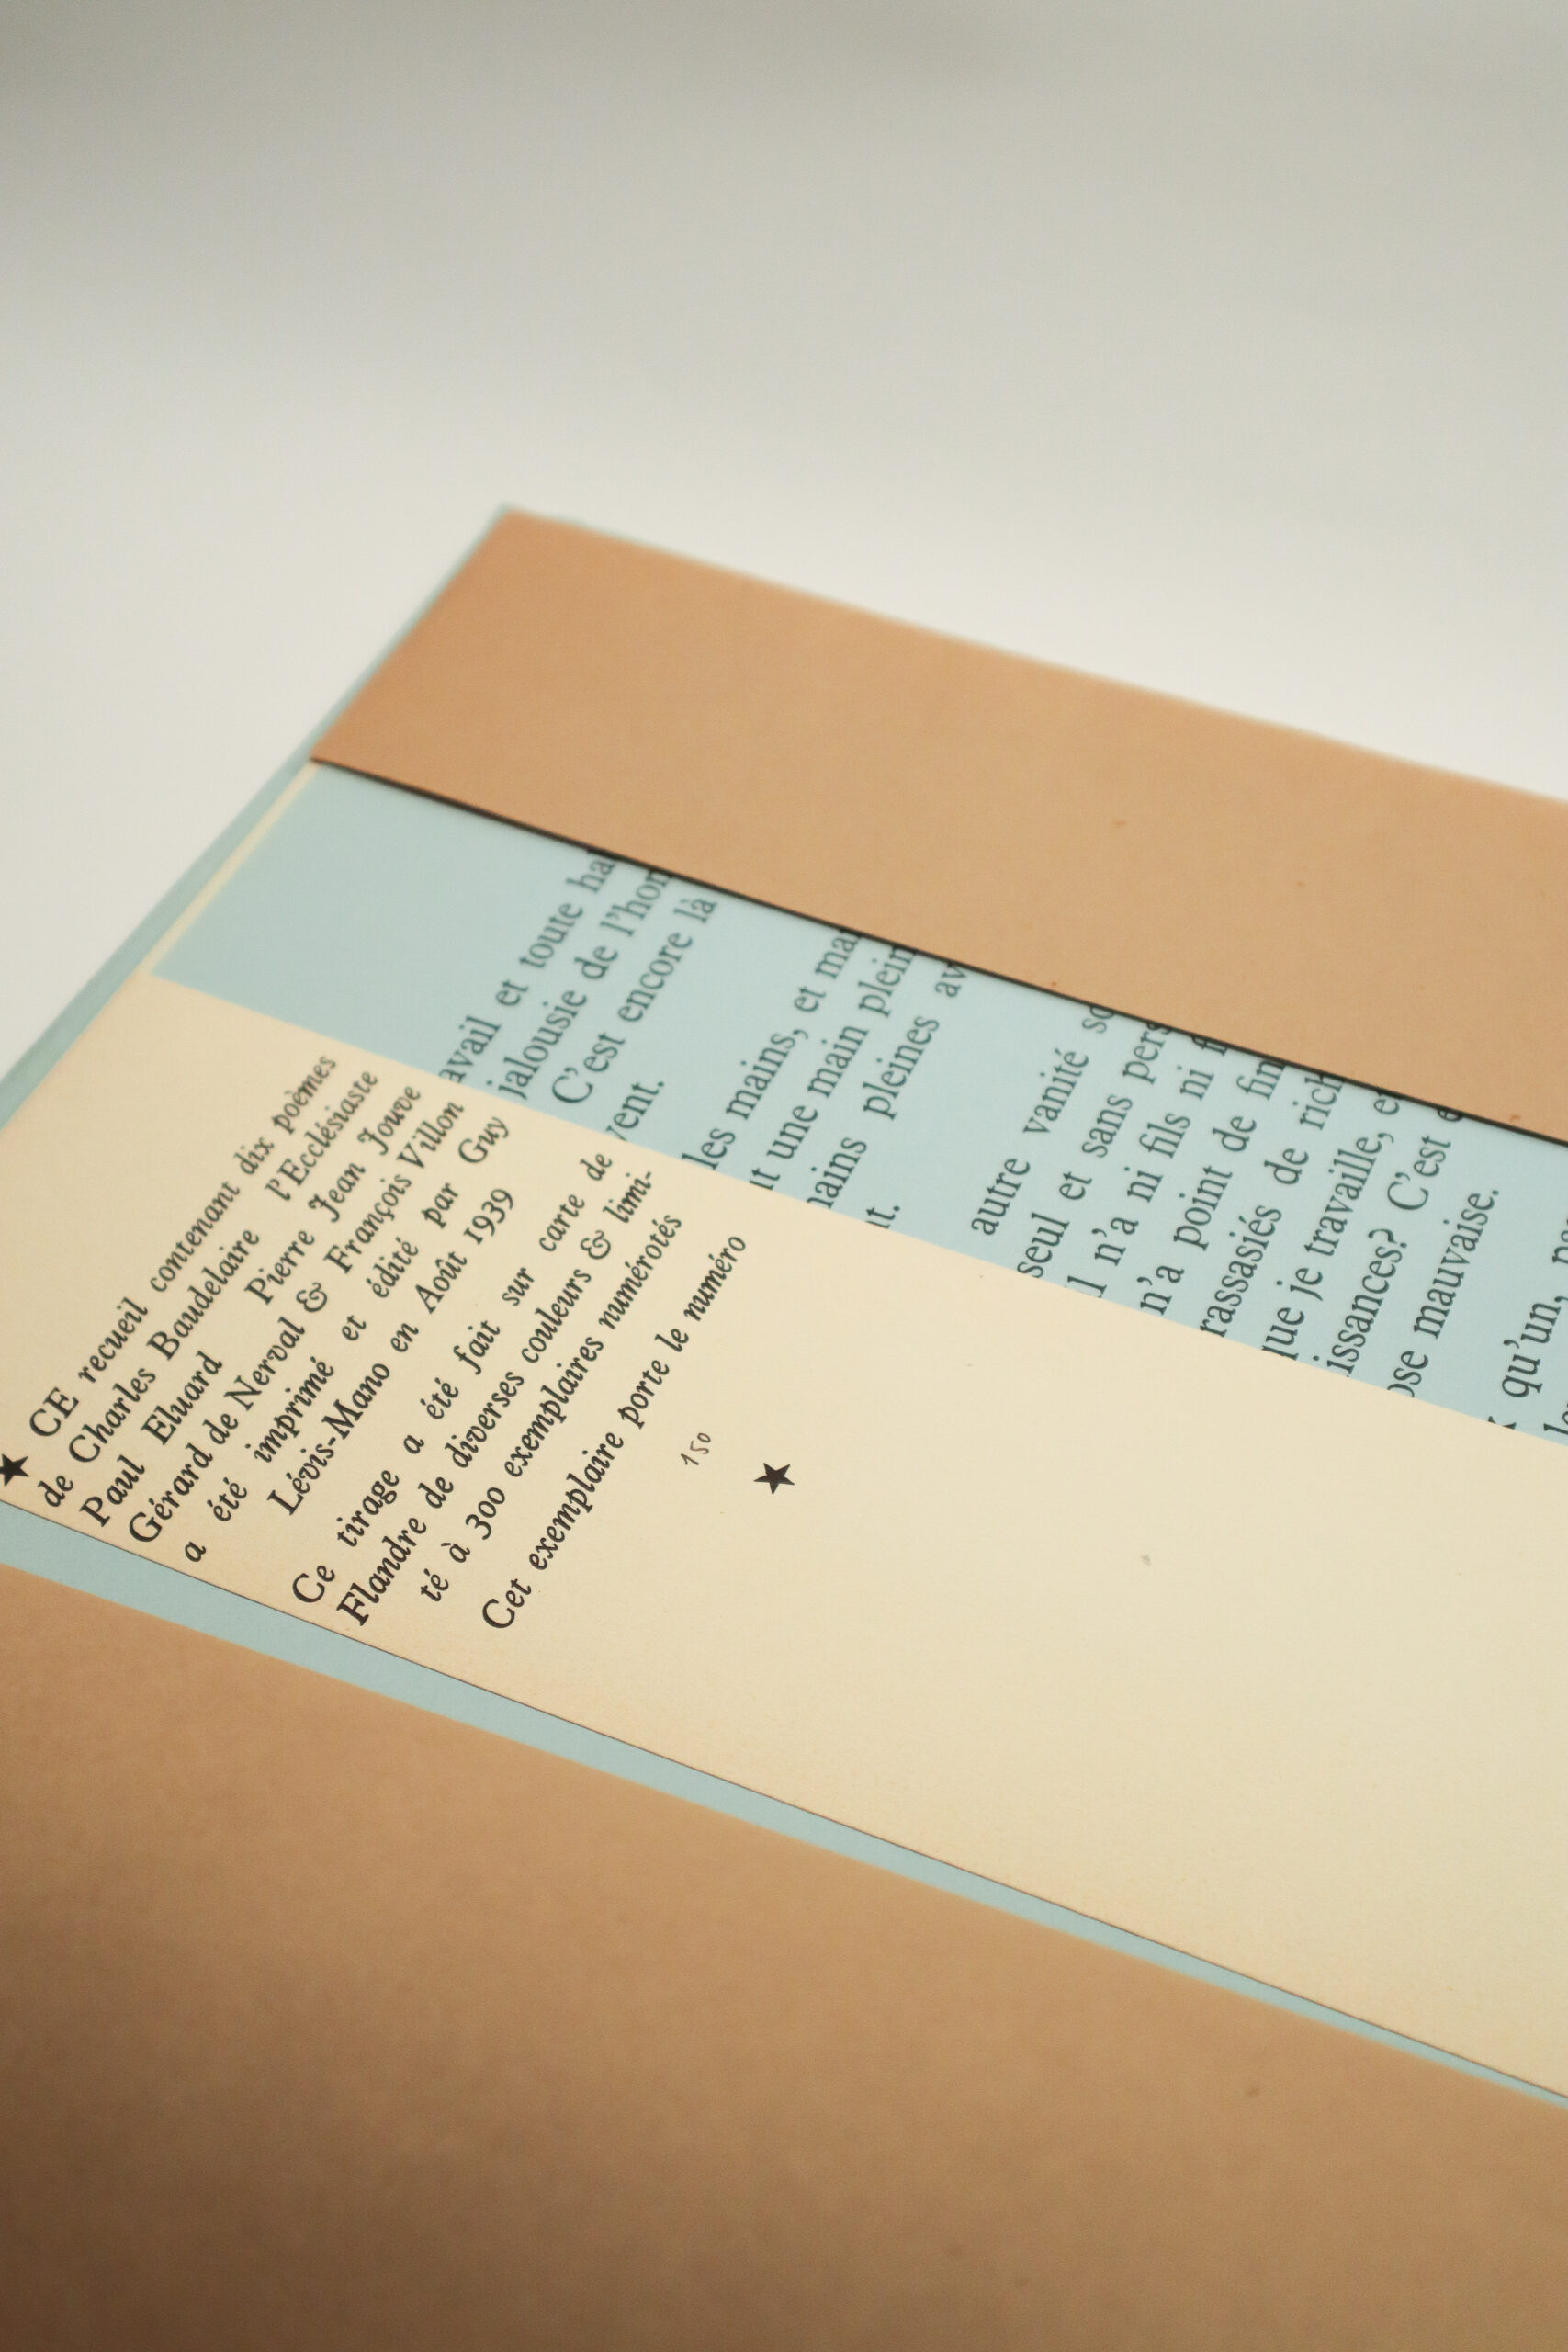 ★ CE recueil contenant dix poèmes
de Charles Baudelaire l'Ecclésiaste
Paul Eluard Pierre Jean Jouve
Gérard de Nerval & François Villon
a été imprimé et édité par Guy
Lévis-Mano en Août 1939
Ce tirage a été fait sur carte de
Flandre de diverses couleurs & limi-
té à 300 exemplaires numérotés
Cet exemplaire porte le numéro
150
★
avail et toute ha
jalousie de l'hom
C'est encore là
vent.
les mains, et ma
ut une main plein
mains pleines av
nt.
autre vanité so
seul et sans pers
l n'a ni fils ni f
n'a point de fin
rassasiés de rich
que je travaille, e
issances? C'est e
ose mauvaise.
qu'un,